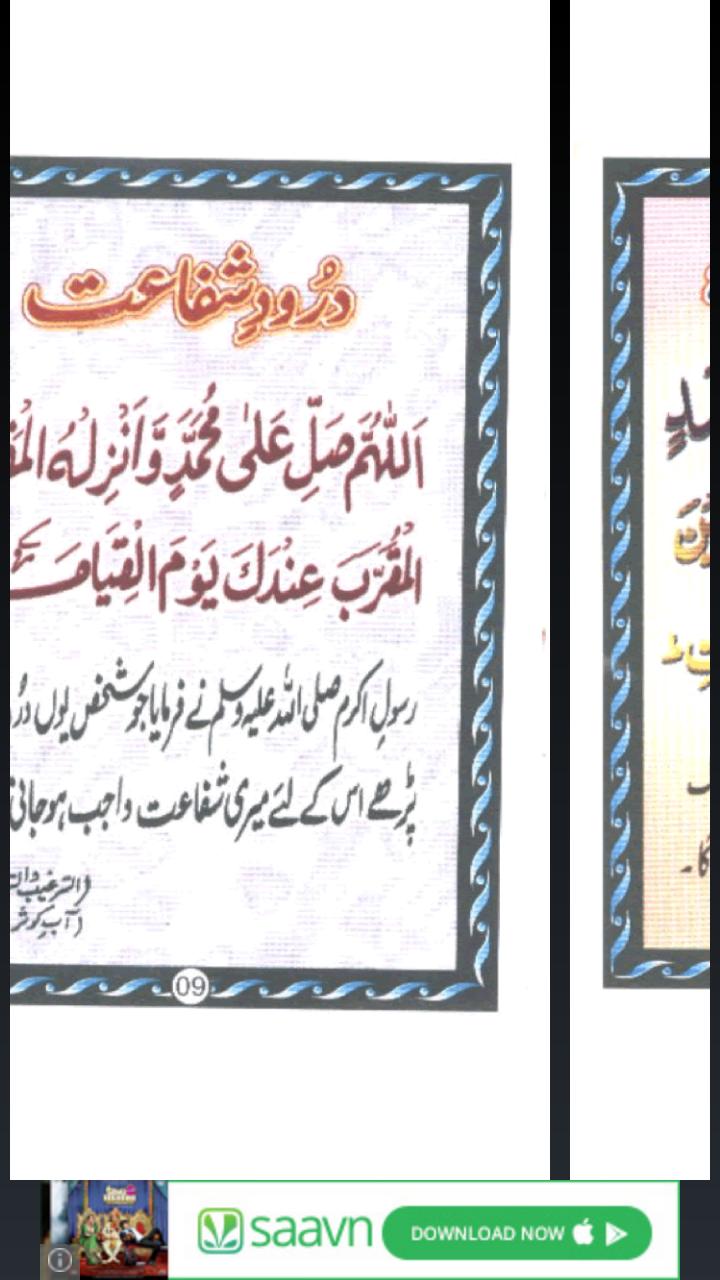 درُودِ شفاعت
اَللّٰهُمَّ صَلِّ عَلٰى مُحَمَّدٍ وَّاَنْزِلْهُ
الْمُقَرَّبَ عِنْدَكَ يَوْمَ الْقِيَامَ
رسولِ اکرم صلی اللہ علیہ وسلم نے فرمایا جو شخص یوں
پڑھے اس کے لئے میری شفاعت واجب ہو جاتی
(الترغیب
(آبِ کوثر
09
saavn
DOWNLOAD NOW